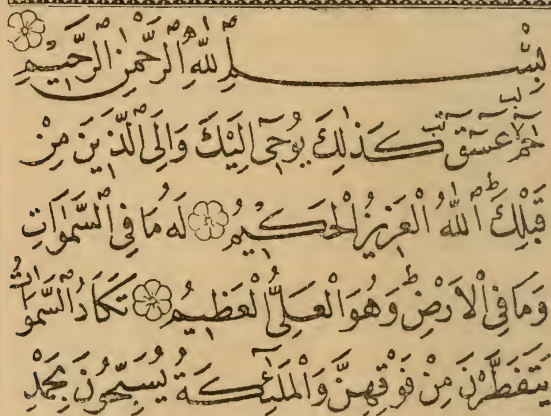 بِسْمِ اللهِ الرَّحْمٰنِ الرَّحِيْمِ
حٰمٓ عٓسٓقٓ كَذٰلِكَ يُوْحٖٓى اِلَيْكَ وَاِلَى الَّذٖيْنَ مِنْ
قَبْلِكَ اللهُ الْعَزٖيْزُ الْحَكٖيْمُ لَهُ مَا فِى السَّمٰوَاتِ
وَمَا فِى الْاَرْضِ وَهُوَ الْعَلِىُّ الْعَظٖيْمُ تَكَادُ السَّمٰوَاتُ
يَتَفَطَّرْنَ مِنْ فَوْقِهِنَّ وَالْمَلٰٓئِكَةُ يُسَبِّحُوْنَ بِحَمْدِ